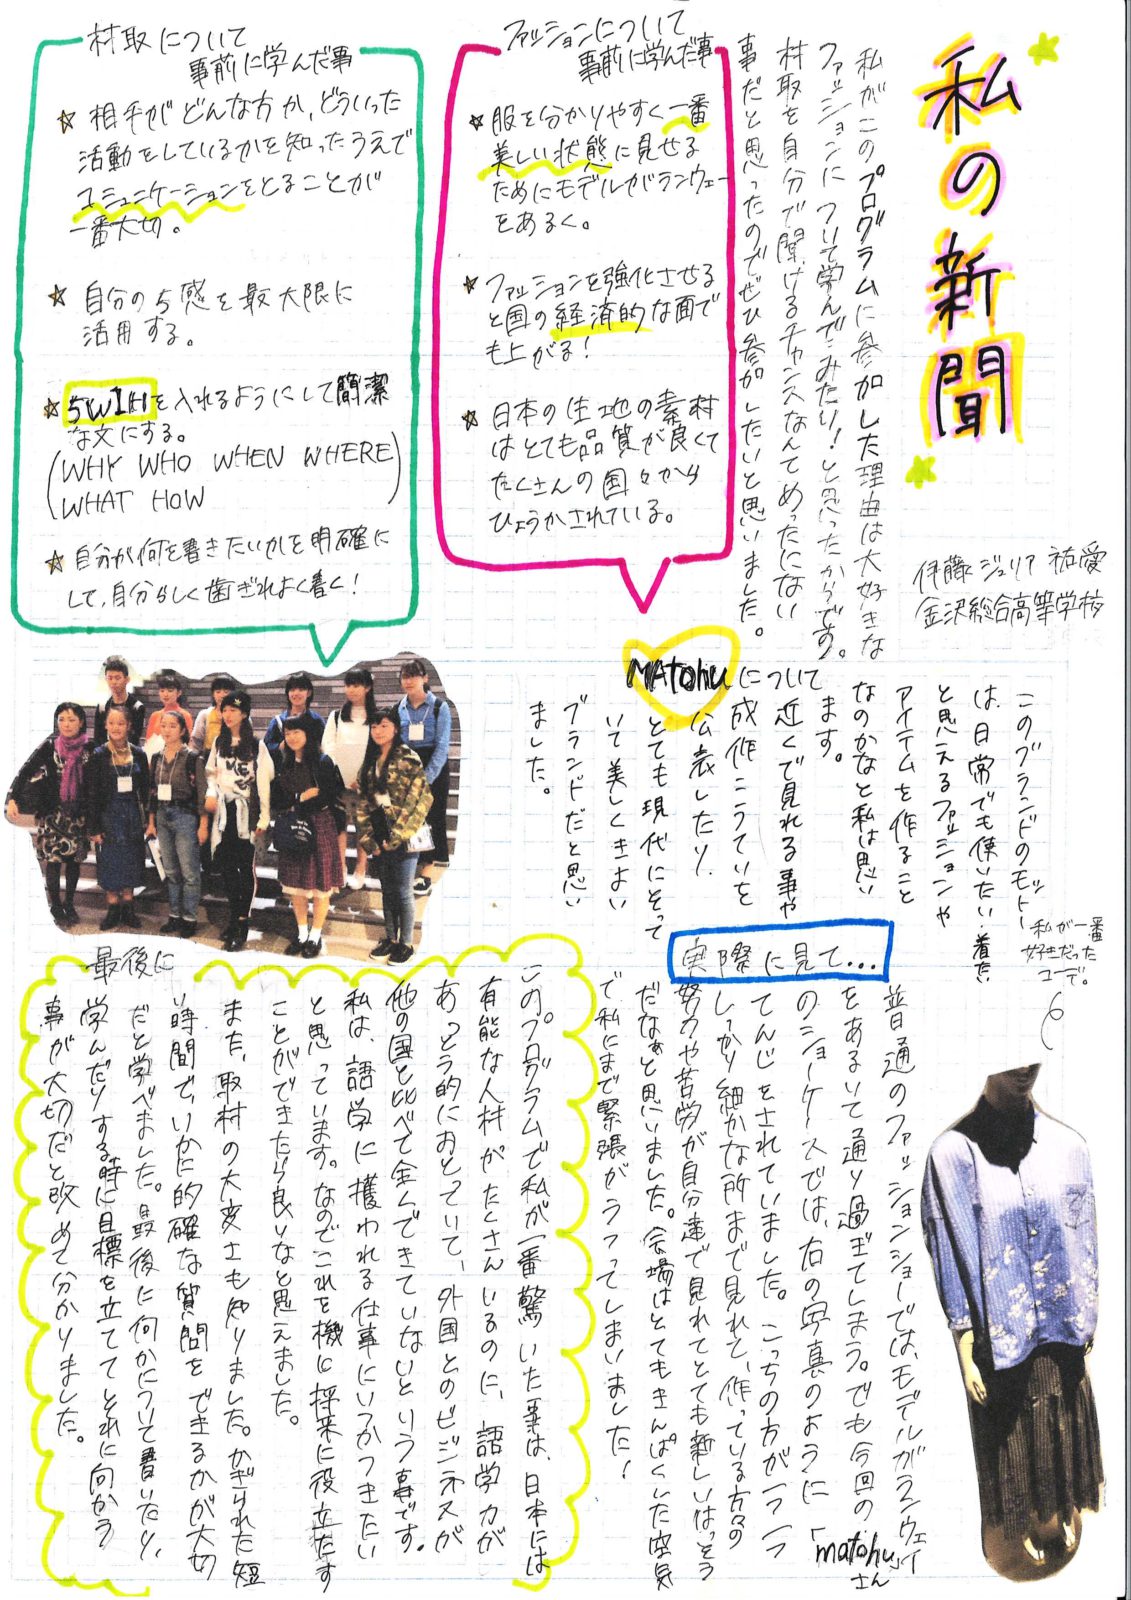 私の新聞
伊藤ジュリア祐愛
金沢総合高等学校
私がこのプログラムに参加した理由は大好きな
ファッションについて学んでみたり!と思ったからです。
村取を自分で聞けるチャンスなんてめったにない
事だと思ったのでぜひ参加したいと思いました。
ファッションについて
事前に学んだ事
☆服を分かりやすく一番
美しい状態に見せる
ためにモデルがランウェー
をあるく。
☆ファッションを強化させる
と国の経済的な面で
も上がる!
☆日本の生地の素材
はとても品質が良くて
たくさんの国々から
ひょうかされている。
村取について
事前に学んだ事
☆相手がどんな方か、どういった
活動をしているかを知ったうえで
コミュニケーションをとることが
一番大切。
☆自分の5感を最大限に
活用する。
☆5W1Hを入れるようにして簡潔
な文にする。
(WHY WHO WHEN WHERE
WHAT HOW)
☆自分が何を書きたいかを明確に
して、自分らしく歯ぎれよく書く!
MATOHUについて
このブランドのモットー
は、日常でも使いたい・着たい
と思えるファッションや
アイテムを作ること
なのかなと私は思い
ます。
近くで見れる事や
成作こうていを
公表したり、
とても現代にそって
いて美しくきよい
ブランドだと思い
ました。
実際に見て...
普通のファッションショーでは、モデルがランウェイ
をあるいて通り過ぎてしまう。でも今回の「matohu」さん
のショーケースでは、右の写真のように
てんじをされていました。こっちの方が一つ一つ
しっかり細かな所まで見れて、作っている方々の
努力や苦労が自分達で見れてとても新しいはっそう
だなぁと思いました。会場はとてもきんぱくした空気
で私にまで緊張がうつってしまいました!
私が一番
好きだった
コーデ。
最後に
このプログラムで私が一番驚いた事は、日本には
有能な人材がたくさんいるのに、語学力が
あっとう的におとっていて、外国とのビジネスが
他の国と比べて全くできていないという事です。
私は、語学に携われる仕事にいつかつきたい
と思っています。なのでこれを機に将来に役立たす
ことができたら良いなと思えました。
また、取村の大変さも知りました。かぎられた短
い時間で、いかに的確な質問をできるかが大切
だと学べました。最後に何かについて書いたり、
学んだりする時に目標を立ててそれに向かう
事が大切だと改めて分かりました。